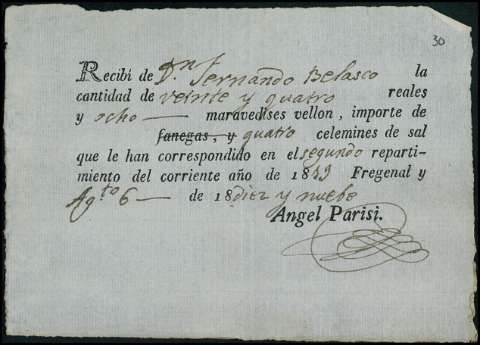 30
Recibí de D.n Fernando Belasco la
cantidad de veinte y quatro reales
y ocho maravedises vellon, importe de
fanegas, y quatro celemines de sal
que le han correspondido en el segundo reparti-
miento del corriente año de 1819 Fregenal y
Ag.to 6 de 18diez y nuebe
Angel Parisi.